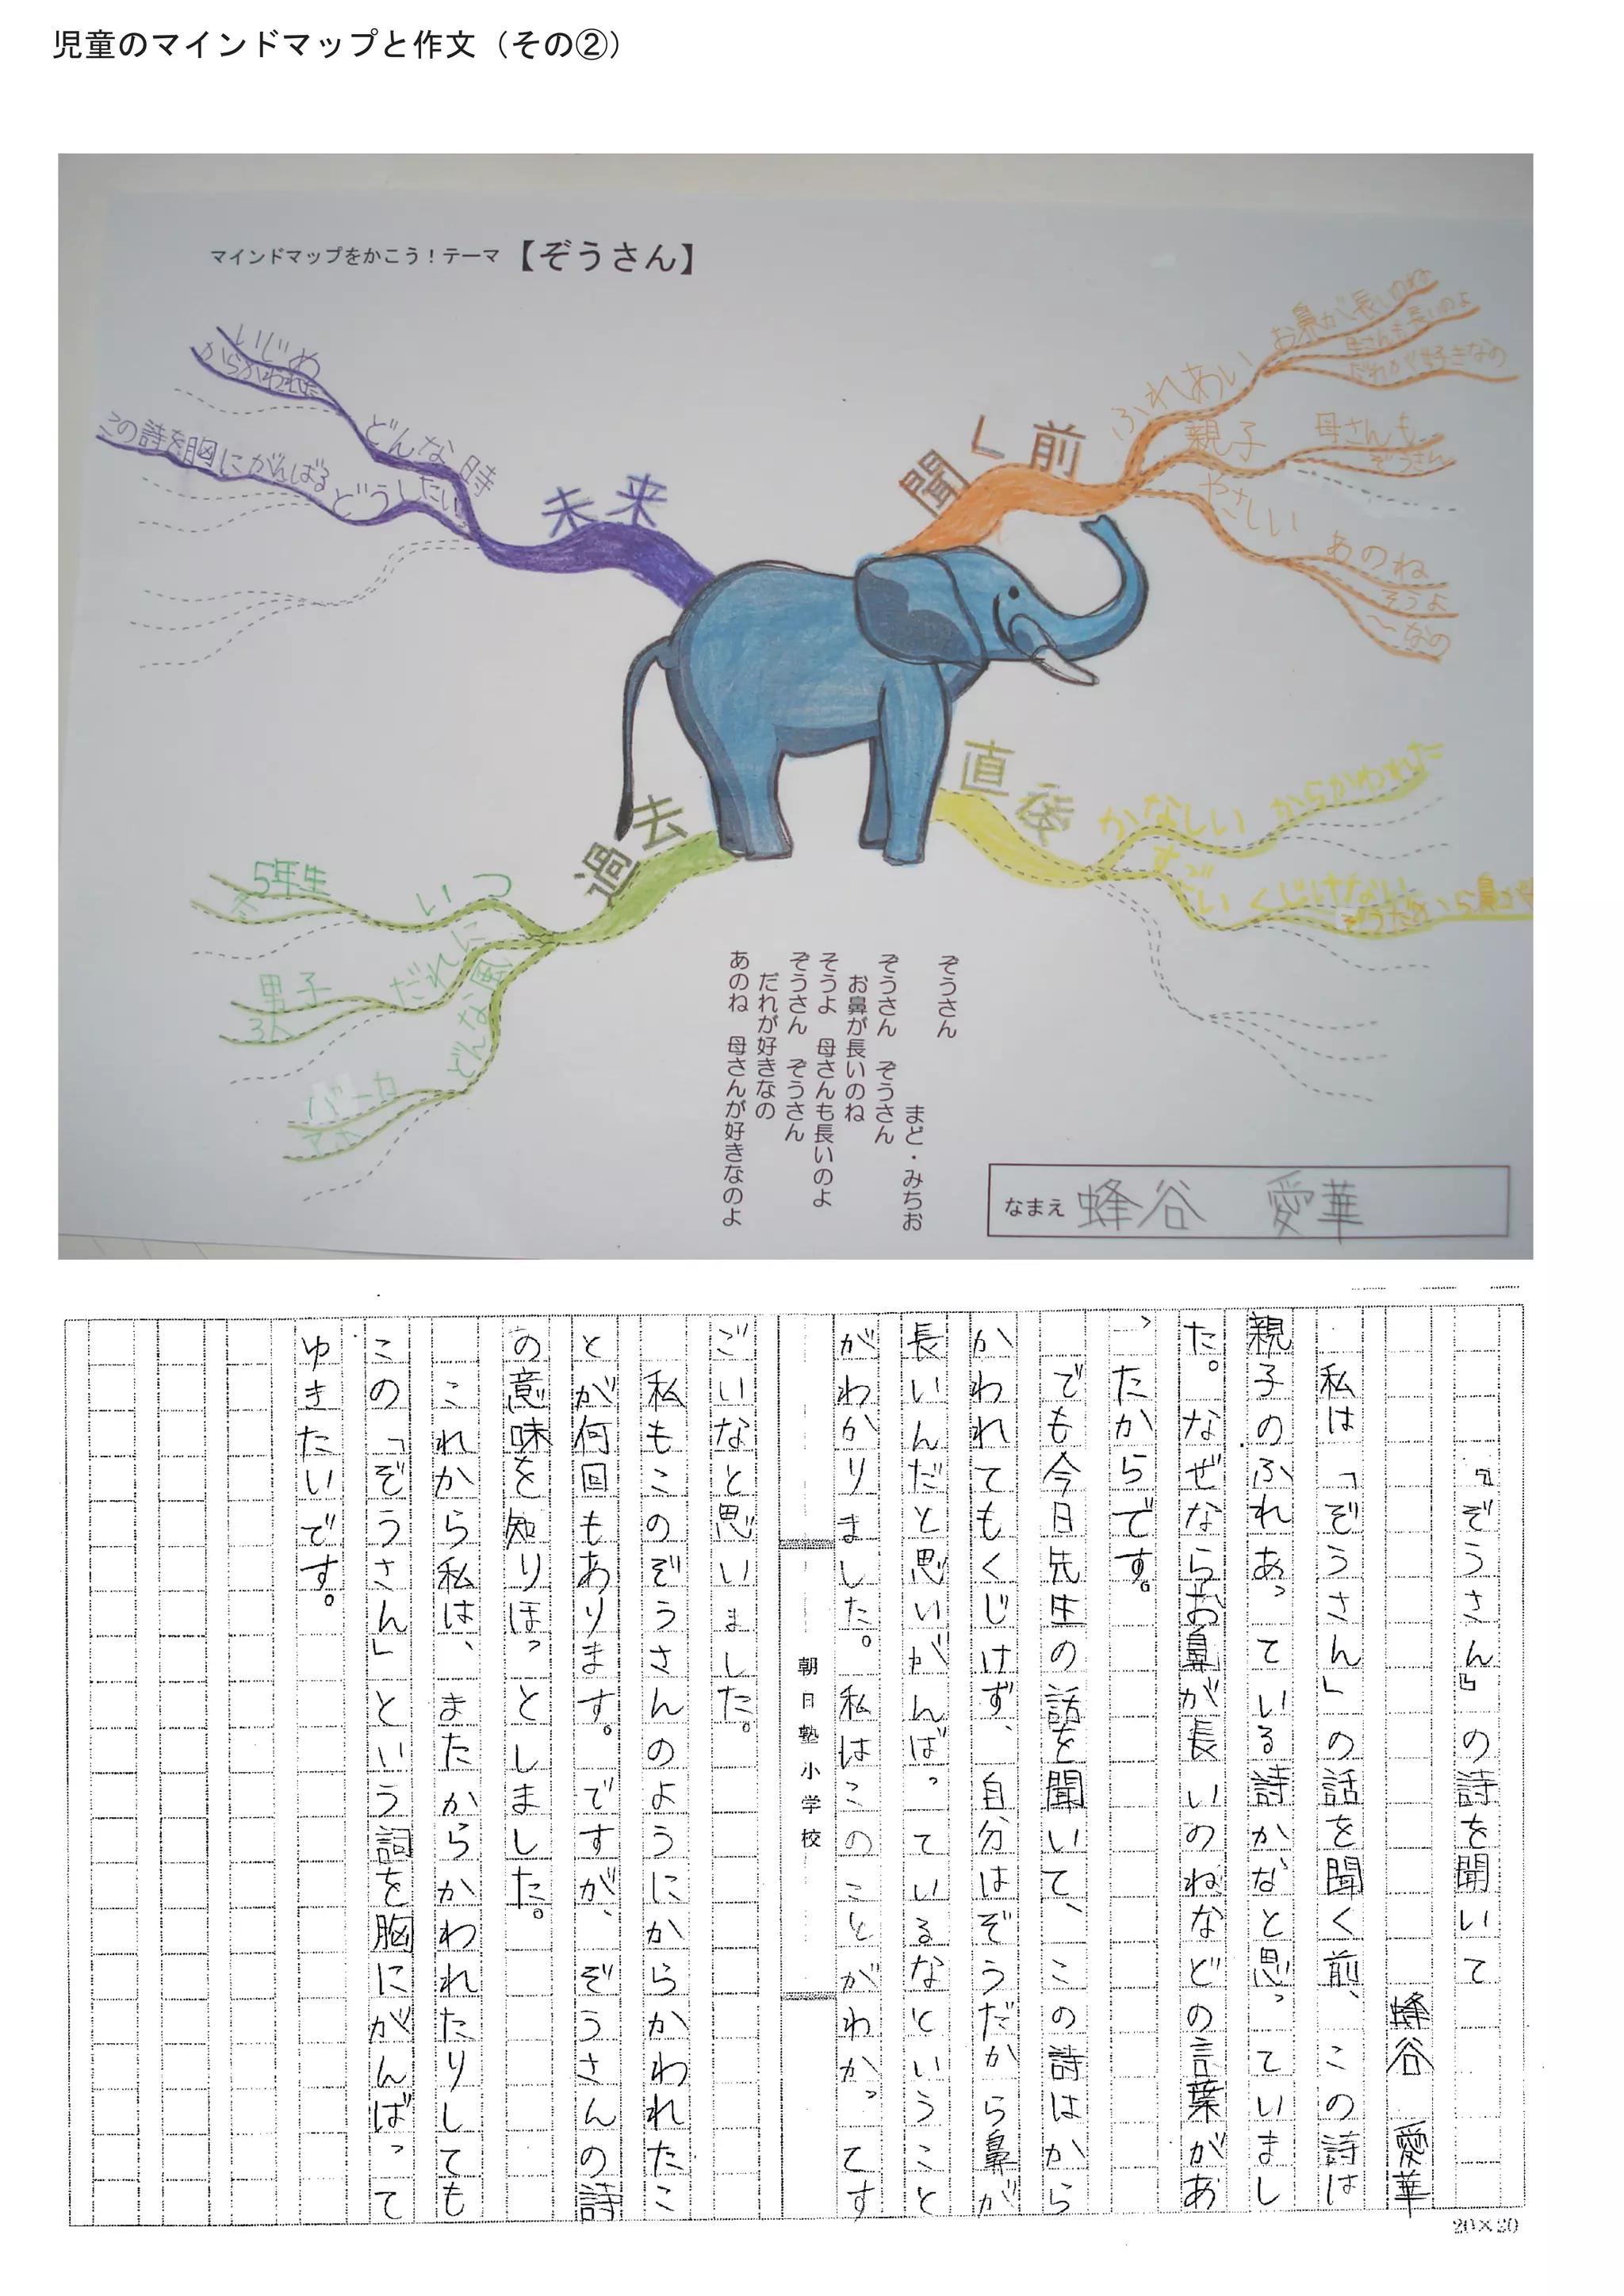 児童のマインドマップと作文（その②）
マインドマップをかこう！テーマ【ぞうさん】
聞く前
ふれあい
お鼻が長いのね
母さんも長いのよ
だれが好きなの
親子
母さんも
ぞうさん
やさしい
あのね
そうよ
〜なの
直後
かなしい
からかわれた
すごい
くじけない
ぞうだから鼻が
過去
いつ
5年生
冬
だれに
男子
3人
どんな風
バーカ
アホ
未来
どんな時
いじめ
からかわれた
どうしたい
この詩を胸にがんばる
ぞうさん
まど・みちお
ぞうさん　ぞうさん
お鼻が長いのね
そうよ　母さんも長いのよ
ぞうさん　ぞうさん
だれが好きなの
あのね　母さんが好きなのよ
なまえ 蜂谷　愛華
『ぞうさん』の詩を聞いて
蜂谷　愛華
私は「ぞうさん」の話を聞く前、この詩は
親子のふれあっている詩かなと思っていまし
た。なぜならお鼻が長いのねなどの言葉があ
ったからです。
でも今日先生の話を聞いて、この詩はから
かわれてもくじけず、自分はぞうだから鼻が
長いんだと思いがんばっているなということ
がわかりました。私はこのことがわかってす
朝日塾小学校
ごいなと思いました。
私もこのぞうさんのようにからかわれたこ
とが何回もあります。ですが、ぞうさんの詩
の意味を知りほっとしました。
これから私は、またからかわれたりしても
この「ぞうさん」という詞を胸にがんばって
ゆきたいです。
20×20